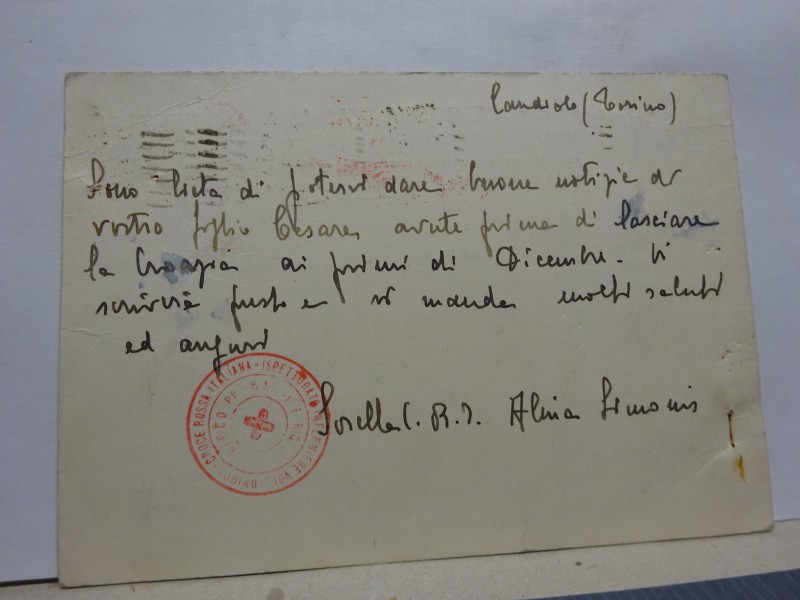 Candiolo (Torino)
Sono lieta di potervi dare buone notizie di
vostro figlio Cesare, avute prima di lasciare
la Croazia ai primi di Dicembre. Vi
scriverà presto e vi manda molti saluti
ed auguri
Sorella C.R.I. Alina Simonis
CROCE ROSSA ITALIANA - ISPETTORATO INFERMIERE VOL.